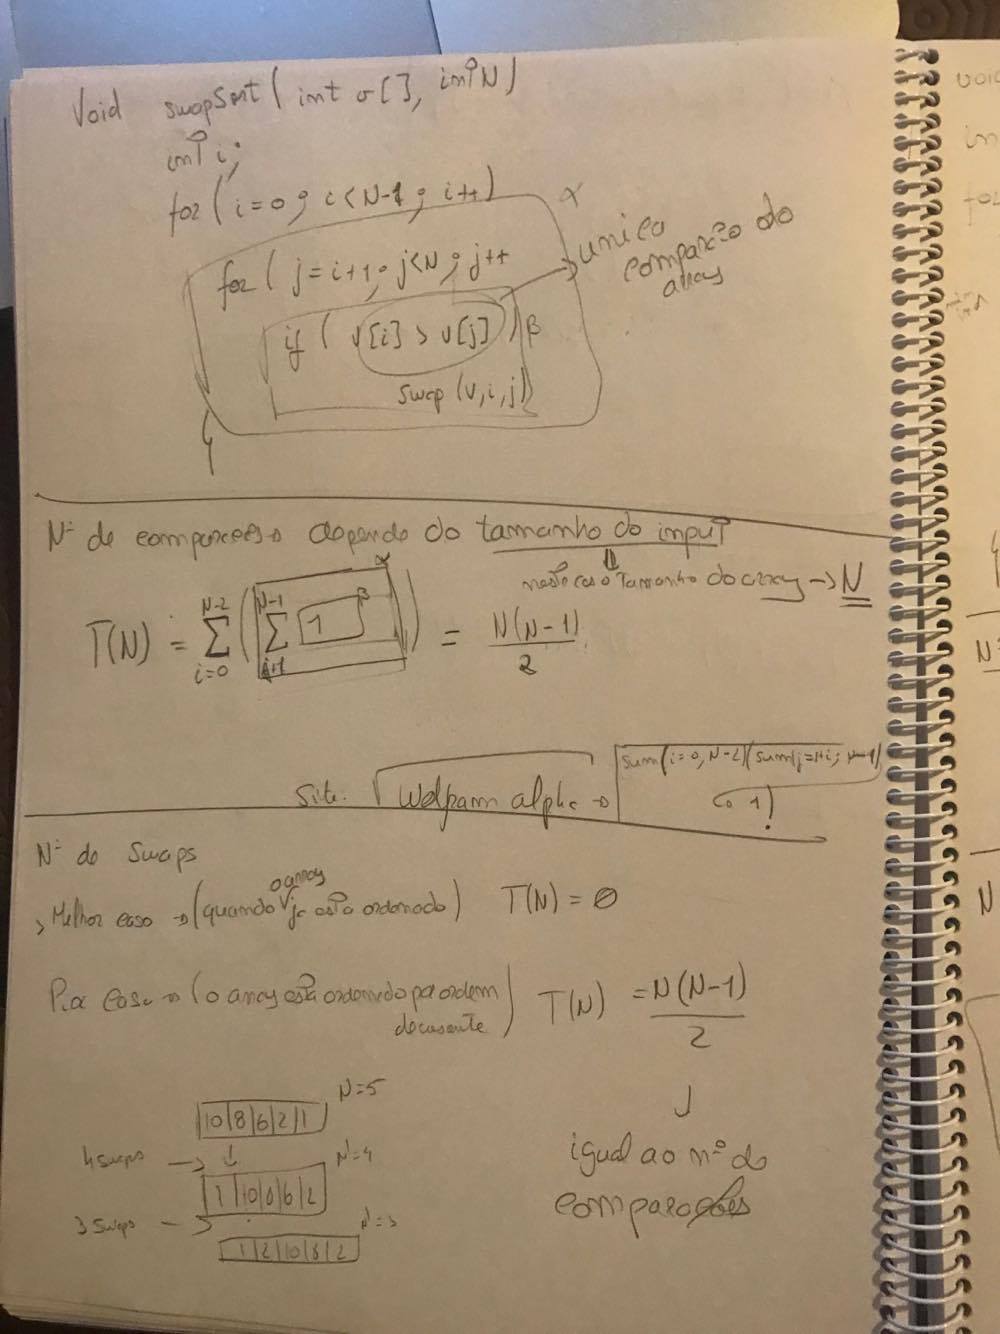 Void swapSort ( int v[], int N)
int i;
for ( i=0; i<N-1; i++)
α
for ( j=i+1; j<N; j++
unica
comparação do
array
if ( v[i] > v[j] ) β
swap (v, i, j)
}
Nº de comparações depende do tamanho do input
neste caso tamanho do array → N
T(N) = ∑ i=0 N-2 ( ∑ j+1 N-1 1 β α ) = N(N-1) / 2
Site: Wolfram alpha → sum(i=0, N-2)(sum(j=1+i; N-1)
↳ 1)
Nº de Swaps
> Melhor caso → (quando o array já está ordenado) T(N) = 0
Pior caso → (o array está ordenado por ordem
decrescente) T(N) = N(N-1) / 2
igual ao nº de
comparações
N=5
10|8|6|2|1
4 swaps → N'=4
1|10|8|6|2
3 swaps → N'=3
1|2|10|8|2